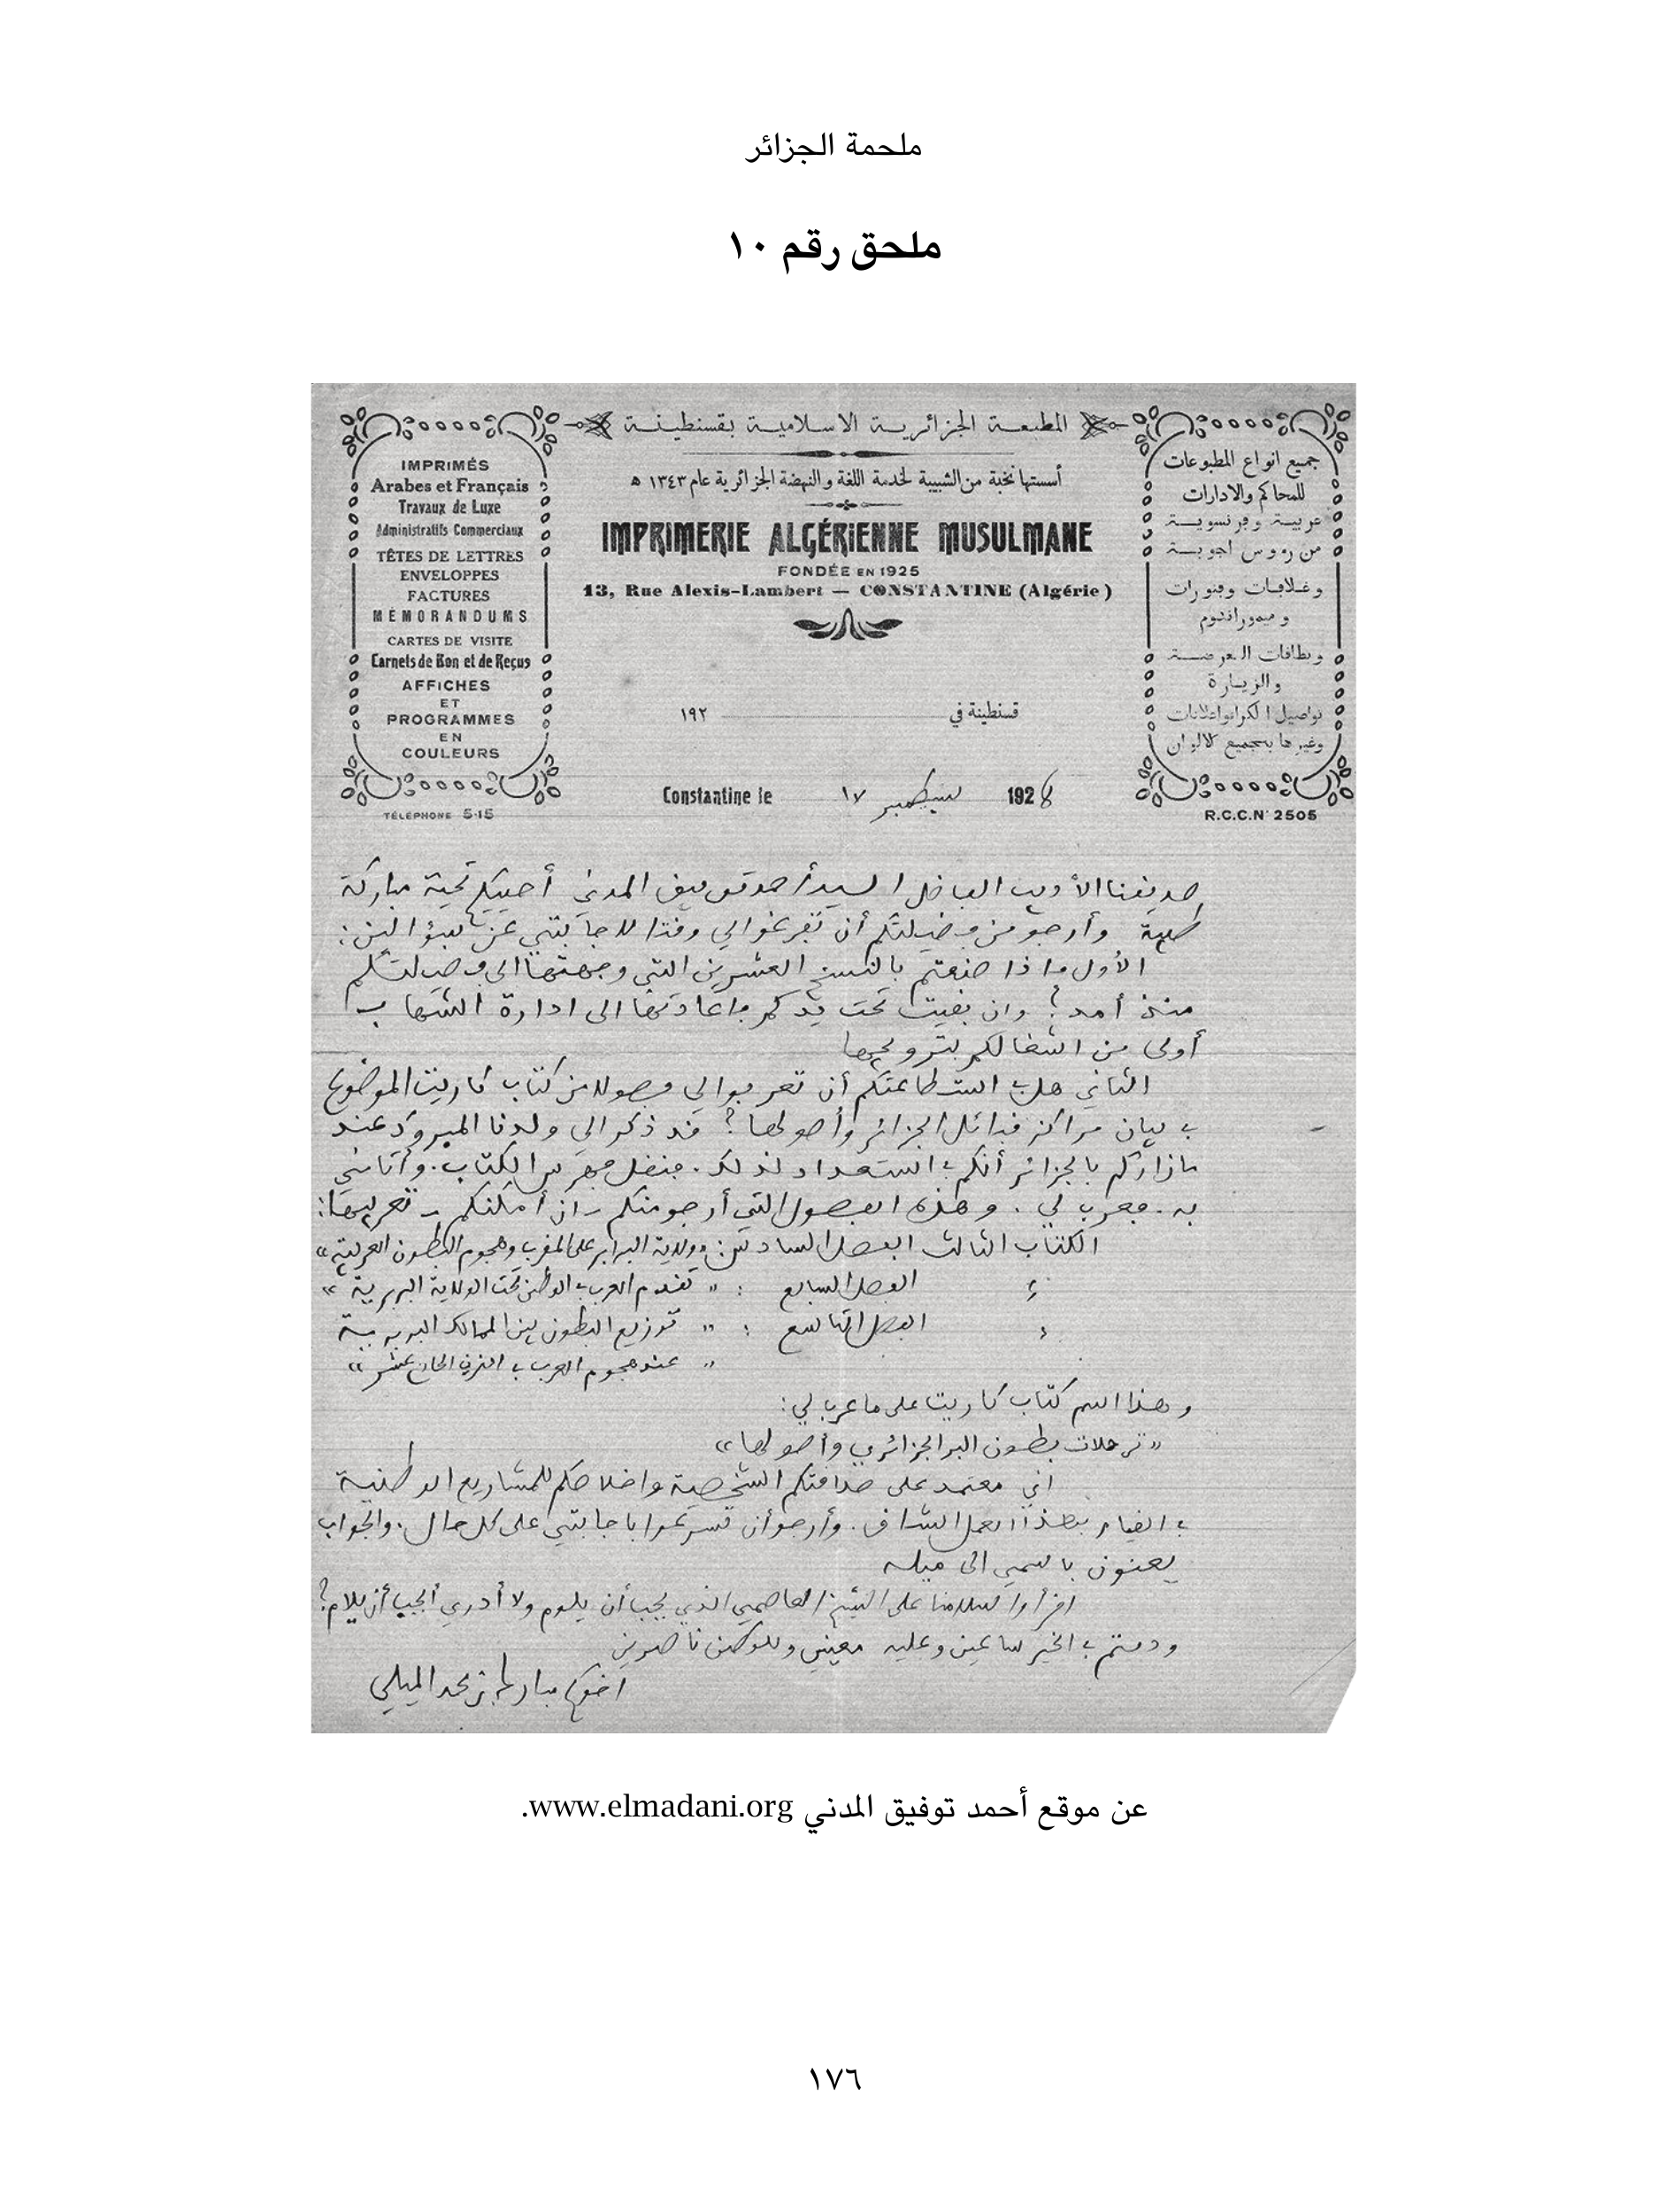 ملحمة الجزائر
ملحق رقم ١٠
المطبعة الجزائرية الاسلامية بقسنطينة
أسستها نخبة من الشبيبة لخدمة اللغة والنهضة الجزائرية عام ١٣٤٣ ه
IMPRIMERIE ALGÉRIENNE MUSULMANE
FONDÉE EN 1925
13, Rue Alexis-Lambert — CONSTANTINE (Algérie)
IMPRIMÉS
Arabes et Français
Travaux de Luxe
Administratifs Commerciaux
TÊTES DE LETTRES
ENVELOPPES
FACTURES
MEMORANDUMS
CARTES DE VISITE
Carnets de Bon et de Reçus
AFFICHES
ET
PROGRAMMES
EN
COULEURS
TÉLÉPHONE 5-15
جميع انواع المطبوعات
للمحاكم والادارات
عربية وفرنسوية
من رءوس اجوبة
وغلافات وفتورات
وميموراندوم
وبطاقات المعرضة
والزيارة
تواصيل الكرا واعلانات
وغيرها بجميع الالوان
R.C.C.N° 2505
قسنطينة في ١٩٢
Constantine le ١٧ سبتمبر 1928
صديقنا الأديب الفاضل السيد أحمد توفيق المدني أحييكم تحية مباركة
طيبة وأرجو من فضيلتكم أن تفرغوا لي وقتا للاجابتي عن سؤالين:
الأول ماذا صنعتم بالنسخ العشرين التي وجهتها الى فضيلتكم
منذ أمد؟ وان بقيت تحت يدكم فاعادتها الى ادارة الشهاب
أولى من اشغالكم بترويجها
الثاني هل في استطاعتكم أن تعربوا لي فصولا من كتاب كاريت الموضوع
في بيان مراكز قبائل الجزائر وأصولها؟ قد ذكر لي ولدنا المبروك عند
ما زاركم بالجزائر أنكم في استعداد لذلك. فنقل فهرس الكتاب. وأتاني
به. فعرب لي. وهذه الفصول التي أرجو منكم - ان أمكنكم - تعريبها:
الكتاب الثالث الفصل السادس: «ولاية البرابر على المغرب وهجوم البطون العربية»
؛ الفصل السابع : « تقدم العرب في الوطن تحت الولاية البربرية »
؛ الفصل التاسع : « توزيع البطون بين الممالك البربرية
« عند هجوم العرب في القرن الحادي عشر »
وهذا اسم كتاب كاريت على ما عرب لي:
«ترحلات بطون البر الجزائري وأصولها»
اني معتمد على صداقتكم الشخصية واخلاصكم للمشاريع الوطنية
في القيام بهذا العمل الشاق. وأرجو أن تسرعوا باجابتي على كل حال. والجواب
يعنون باسمي الى ميله
اقرأوا سلامنا على الشيخ العاصمي الذي يجب أن يلوم ولا أدري أيجب أن يلام؟
ودمتم في الخير ساعين وعليه معينين وللوطن ناصرين
اخوكم مبارك بن محمد الميلي
عن موقع أحمد توفيق المدني www.elmadani.org.
١٧٦